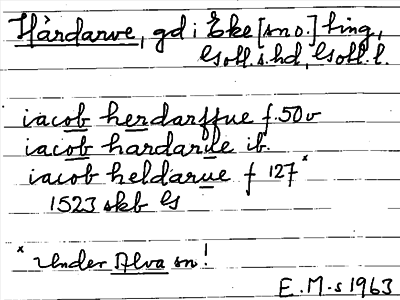 Hàrdarve, gd i Eke [sn o.] ting,
Gotl. s. hd, Gotl. l.
iacob herdarffue f. 50v
iacob hardarile ib.
iacob heldarue f 127*
1523 skb Gs
* Under Alva sn!
E.M-s 1963